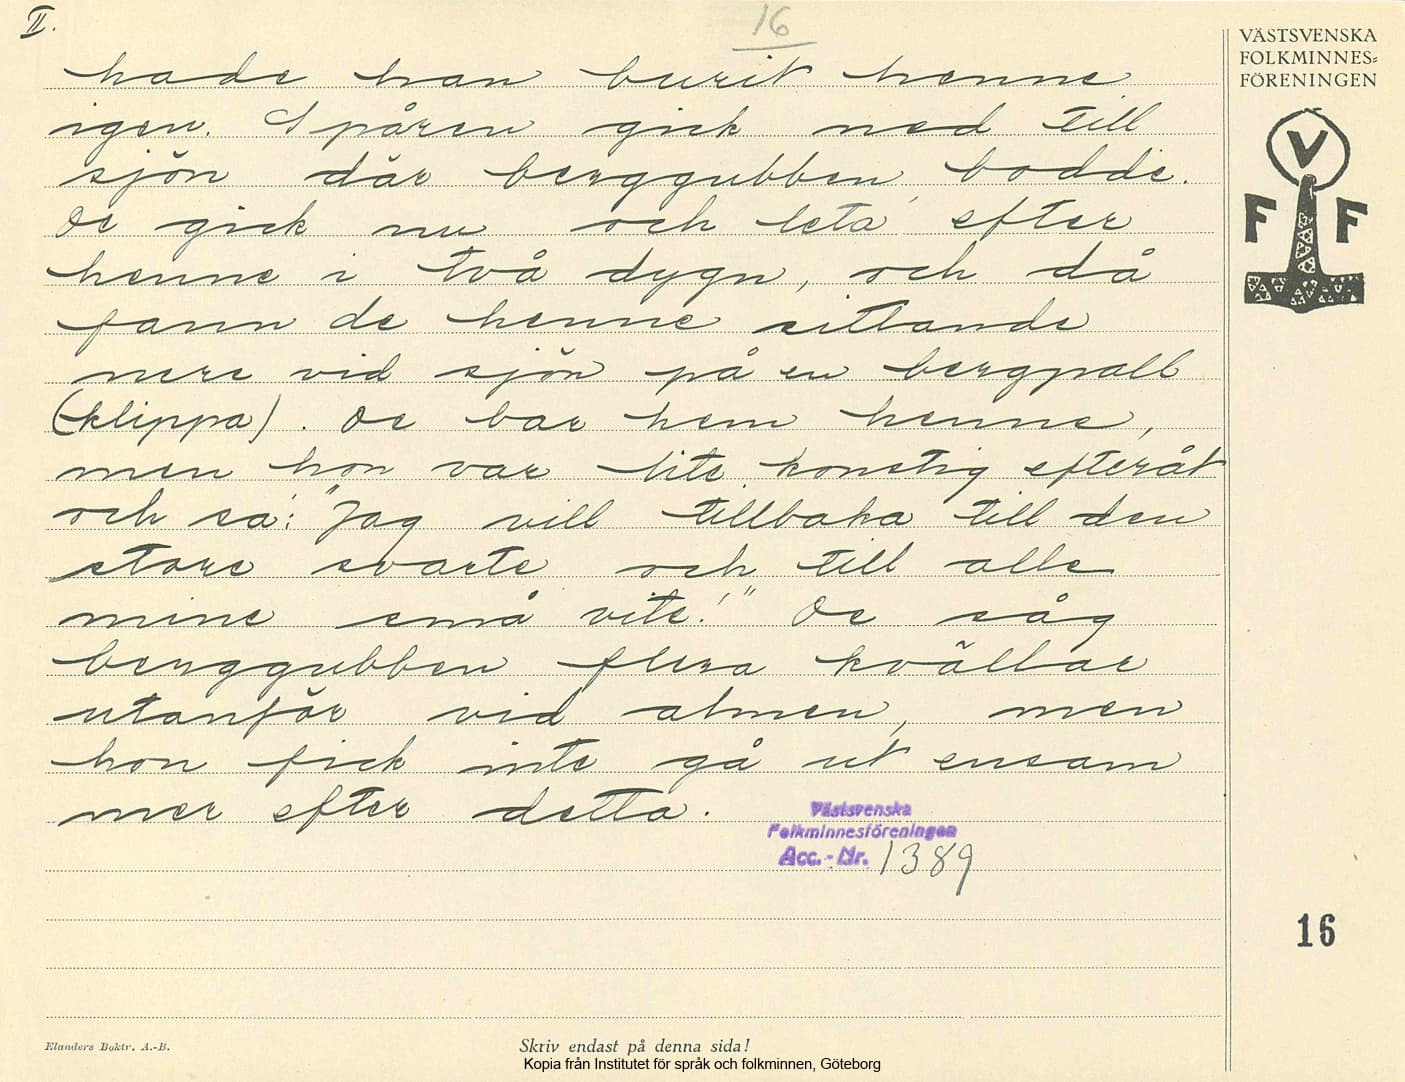 II.
16
hade han burit henne
igen. Spåren gick ned till
sjön där berggubben bodde.
De gick nu och leta efter
henne i två dygn, och då
fann de henne sittande
nere vid sjön på en bergpall
(klippa). De bar hem henne,
men hon var lite konstig efteråt
och sa: "Jag vill tillbaka till den
store svarte och till alle
mine små vite!" De såg
berggubben flera kvällar
utanför vid almen, men
hon fick inte gå ut ensam
mer efter detta.
Västsvenska
Folkminnesföreningen
Acc.-Nr. 1389
VÄSTSVENSKA
FOLKMINNES=
FÖRENINGEN
V
F F
16
Elanders Boktr. A.-B.
Skriv endast på denna sida!
Kopia från Institutet för språk och folkminnen, Göteborg